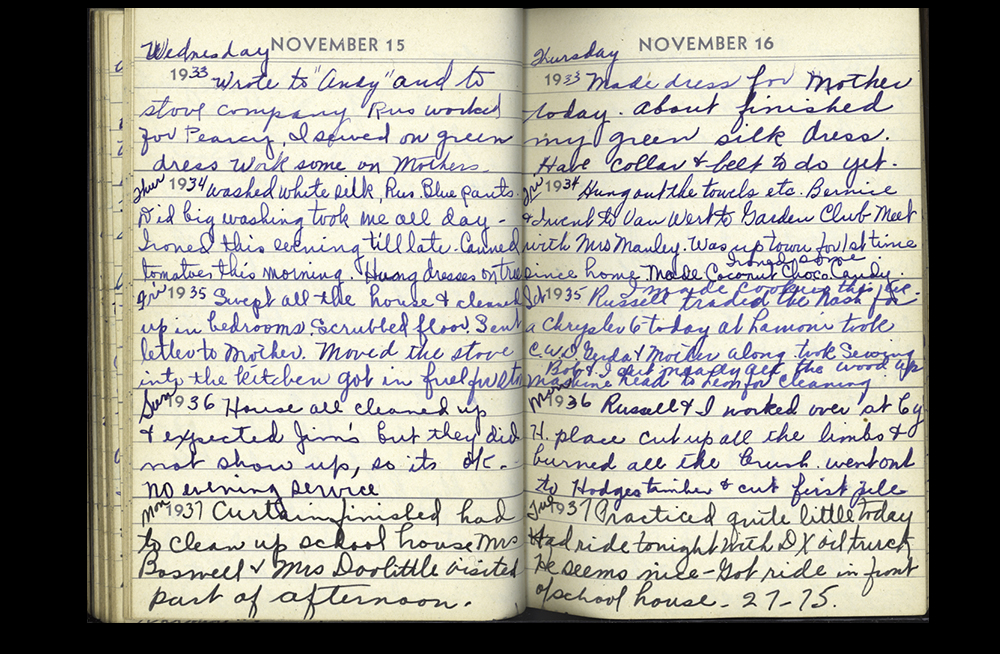 Wednesday
NOVEMBER 15
1933 Wrote to "Andy" and to
stove company Rus worked
for Pearcy. I sewed on green
dress Work some on Mothers.
Thur 1934 washed white silk, Rus Blue pants.
Did big washing took me all day -
Ironed this evening till late. Canned
tomatoes this morning. Hung dresses on tree
Fri 1935 Swept all the house & cleaned
up in bedrooms. Scrubbed floor. Sent
letter to Mother. Moved the stove
into the kitchen got in fuel
Sun 1936 House all cleaned up
& expected Jim's but they did
not show up, so its ok. -
no evening service
Mon 1937 Curtain finished had
to clean up school house Mrs
Boswell & Mrs Doolittle visited
part of afternoon.
Thursday
NOVEMBER 16
1933 Made dress for Mother
today. About finished
my green silk dress.
Have collar & belt to do yet.
Fri 1934 Hung out the towels etc. Bernice
& I went to Van Wert to Garden Club Meet
with Mrs Manley. Was up town for 1st time
Ironed some
since home Made Coconut Choco Candy.
I made cookies this
Sat 1935 Russell traded the Nash for
a Chrysler 6 today at Lamoni took
C.W.D Gerda & Mother along. took Sewing
Bob & I got up the wood up
machine head to Leon for cleaning
Mon 1936 Russell & I worked over at Cy
H. place cut up all the limbs &
burned all the brush. went out
to Hodges timber & cut first pile
Tue 1937 Practiced quite little today
Had ride tonight with DX oil truck
He seems nice - Got ride in front
of school house - 27-75.